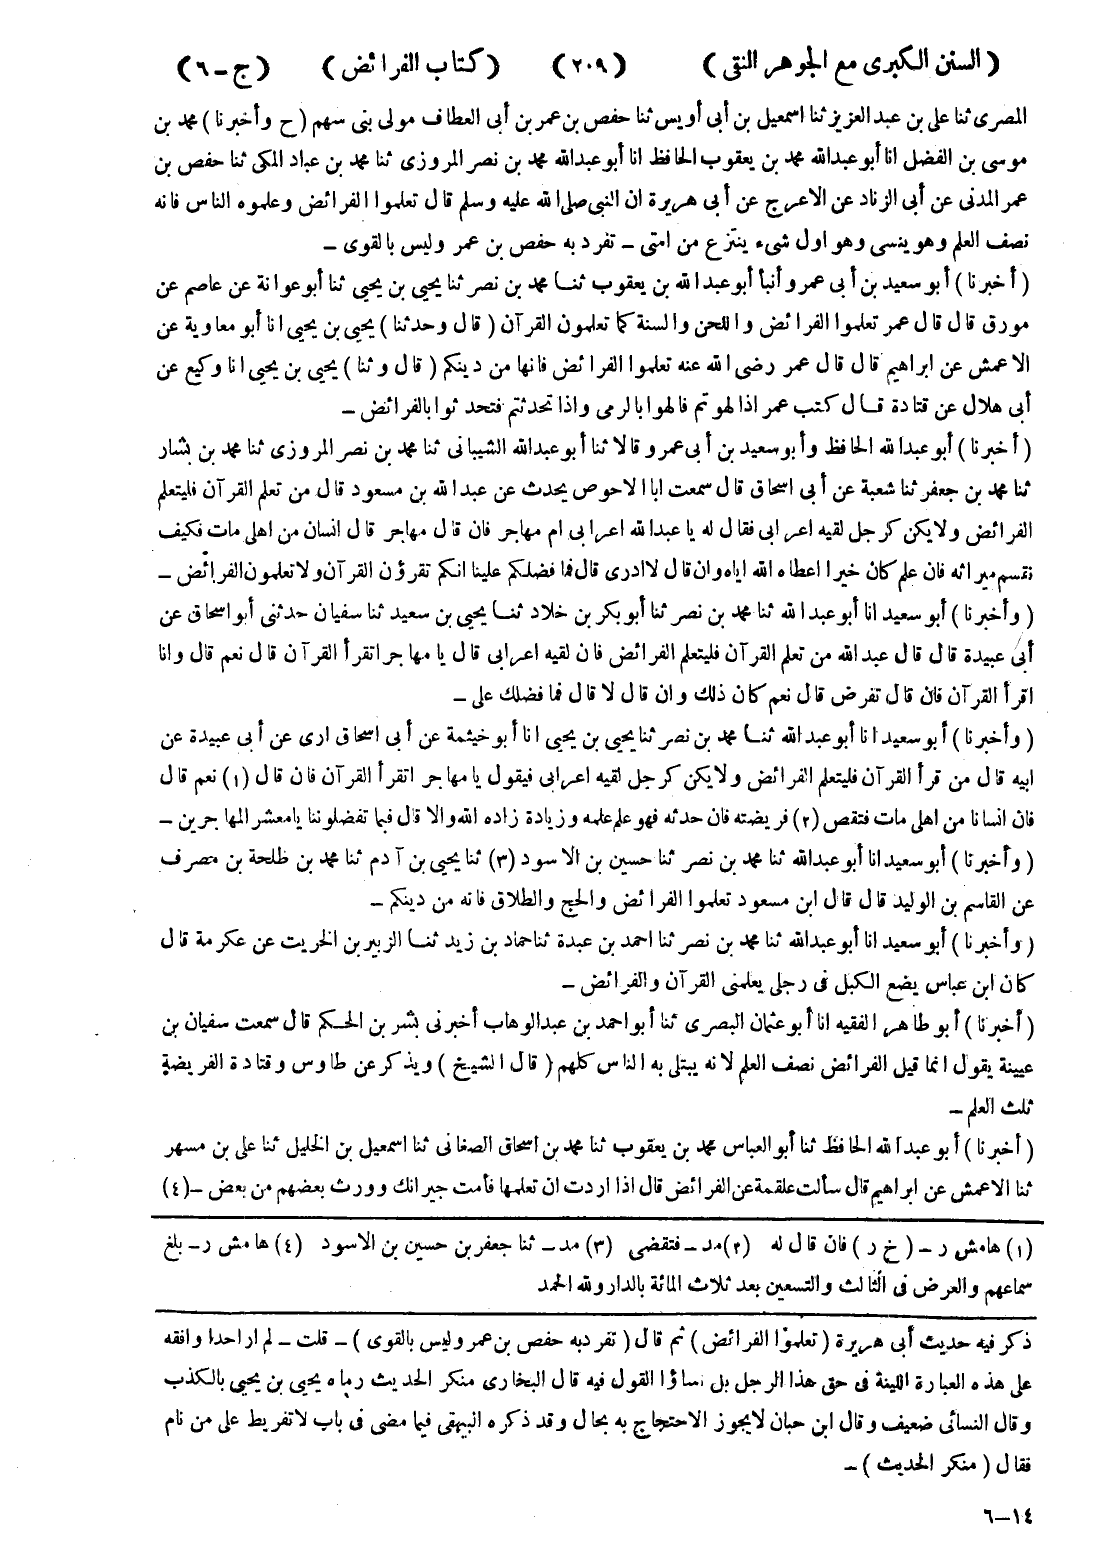 ( السنن الكبرى مع الجوهر النقى ) ( ٢٠٩ ) ( كتاب الفرائض ) ( ج ـ ٦ )
المصرى ثنا على بن عبد العزيز ثنا اسمعيل بن أبى أويس ثنا حفص بن عمر بن أبى العطاف مولى بنى سهم ( ح وأخبرنا ) محمد بن
موسى بن الفضل انا أبو عبدالله محمد بن يعقوب الحافظ انا أبو عبدالله محمد بن نصر المروزى ثنا محمد بن عباد المكى ثنا حفص بن
عمر المدنى عن أبى الزناد عن الاعرج عن أبى هريرة ان النبى صلى الله عليه وسلم قال تعلموا الفرائض وعلموه الناس فانه
نصف العلم وهو ينسى وهو اول شىء ينتزع من امتى ـ تفرد به حفص بن عمر وليس بالقوى ـ
( أخبرنا ) أبو سعيد بن أبى عمرو أنبأ أبو عبدالله بن يعقوب ثنا محمد بن نصر ثنا يحيى بن يحيى ثنا أبو عوانة عن عاصم عن
مورق قال قال عمر تعلموا الفرائض واللحن والسنة كما تعلمون القرآن ( قال وحدثنا ) يحيى بن يحيى انا أبو معاوية عن
الاعمش عن ابراهيم قال قال عمر رضى الله عنه تعلموا الفرائض فانها من دينكم ( قال وثنا ) يحيى بن يحيى انا وكيع عن
أبى هلال عن قتادة قال كتب عمر اذا لهوتم فالهوا بالرمى واذا تحدثتم فتحدثوا بالفرائض ـ
( أخبرنا ) أبو عبدالله الحافظ وأبو سعيد بن أبى عمرو قالا ثنا أبو عبدالله الشيبانى ثنا محمد بن نصر المروزى ثنا محمد بن بشار
ثنا محمد بن جعفر ثنا شعبة عن أبى اسحاق قال سمعت ابا الاحوص يحدث عن عبدالله بن مسعود قال من تعلم القرآن فليتعلم
الفرائض ولا يكن كرجل لقيه اعرابى فقال له يا عبدالله اعرابى ام مهاجر فان قال مهاجر قال انسان من اهلى مات فكيف
نقسم ميراثه فان علم كان خيرا اعطاه الله اياه وان قال لا ادرى قال فما فضلكم علينا انكم تقرؤن القرآن ولا تعلمون الفرائض ـ
( وأخبرنا ) أبو سعيد انا أبو عبدالله ثنا محمد بن نصر ثنا أبو بكر بن خلاد ثنا يحيى بن سعيد ثنا سفيان حدثنى أبو اسحاق عن
أبى عبيدة قال قال عبدالله من تعلم القرآن فليتعلم الفرائض فان لقيه اعرابى قال يا مهاجر اتقرأ القرآن قال نعم قال وانا
اقرأ القرآن فان قال تفرض قال نعم كان ذلك وان قال لا قال فما فضلك على ـ
( وأخبرنا ) أبو سعيد انا أبو عبدالله ثنا محمد بن نصر ثنا يحيى بن يحيى انا أبو خيثمة عن أبى اسحاق ارى عن أبى عبيدة عن
ابيه قال من قرأ القرآن فليتعلم الفرائض ولا يكن كرجل لقيه اعرابى فيقول يا مهاجر اتقرأ القرآن فان قال (١) نعم قال
فان انسانا من اهلى مات فتقص (٢) فريضته فان حدثه فهو علم علمه وزيادة زاده الله والا قال فبما تفضلوننا يا معشر المهاجرين ـ
( وأخبرنا ) أبو سعيد انا أبو عبدالله ثنا محمد بن نصر ثنا حسين بن الاسود (٣) ثنا يحيى بن آدم ثنا محمد بن طلحة بن مصرف
عن القاسم بن الوليد قال قال ابن مسعود تعلموا الفرائض والحج والطلاق فانه من دينكم ـ
( وأخبرنا ) أبو سعيد انا أبو عبدالله ثنا محمد بن نصر ثنا احمد بن عبدة ثنا حماد بن زيد ثنا الزبير بن الخريت عن عكرمة قال
كان ابن عباس يضع الكبل فى رجلى يعلمنى القرآن والفرائض ـ
( أخبرنا ) أبو طاهر الفقيه انا أبو عثمان البصرى ثنا أبو احمد بن عبدالوهاب أخبرنى بشر بن الحكم قال سمعت سفيان بن
عيينة يقول انما قيل الفرائض نصف العلم لانه يبتلى به الناس كلهم ( قال الشيخ ) ويذكر عن طاوس وقتادة الفريضة
ثلث العلم ـ
( أخبرنا ) أبو عبدالله الحافظ ثنا أبو العباس محمد بن يعقوب ثنا محمد بن اسحاق الصغانى ثنا اسمعيل بن الخليل ثنا على بن مسهر
ثنا الاعمش عن ابراهيم قال سألت علقمة عن الفرائض قال اذا اردت ان تعلمها فأمت جيرانك وورث بعضهم من بعض ـ (٤)
(١) هامش ر ـ ( خ ر ) فان قال له (٢) مد ـ فتقضى (٣) مد ـ ثنا جعفر بن حسين بن الاسود (٤) هامش ر ـ بلغ
سماعهم والعرض فى الثالث والتسعين بعد ثلاث المائة بالدار ولله الحمد
ذكر فيه حديث أبى هريرة ( تعلموا الفرائض ) ثم قال ( تفرد به حفص بن عمر وليس بالقوى ) ـ قلت ـ لم ار احدا وافقه
على هذه العبارة اللينة فى حق هذا الرجل بل اساؤا القول فيه قال البخارى منكر الحديث رماه يحيى بن يحيى بالكذب
وقال النسائى ضعيف وقال ابن حبان لا يجوز الاحتجاج به بحال وقد ذكره البيهقى فيما مضى فى باب لا تفريط على من نام
فقال ( منكر الحديث ) ـ
٦ـ١٤